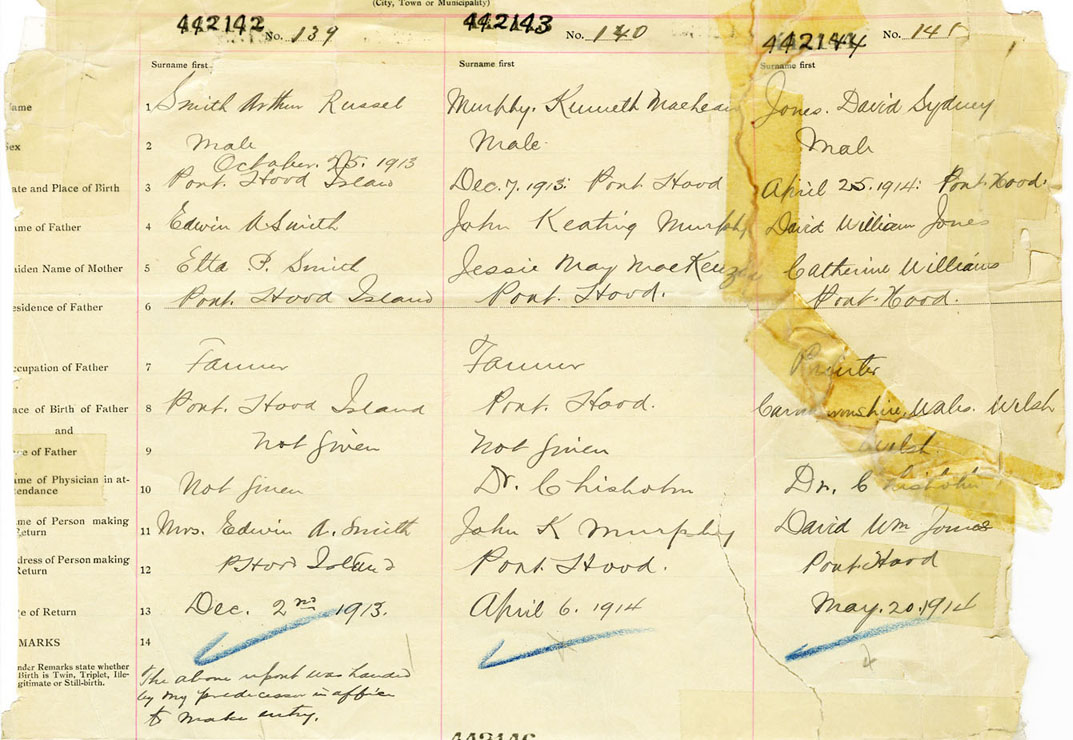 (City, Town or Municipality)
442142 No. 139 442143 No. 140 442144 No.
Surname first Surname first Surname first
ame 1 Smith Arthur Russel Murphy. Kenneth Jones. David Sydney
ex 2 Male Male Male
October. 25. 1913
ate and Place of Birth 3 Port. Hood Island Dec. 7. 1913: Port Hood April 25. 1914: Port Hood.
ame of Father 4 Edwin A Smith John Keating Murphy David William Jones
aiden Name of Mother 5 Etta P. Smith Jessie May MacKenzie Catherine Williams
esidence of Father 6 Port. Hood Island Port. Hood. Port. Hood.
ccupation of Father 7 Farmer Farmer
ace of Birth of Father 8 Port. Hood Island Port. Hood. Wales. Welsh
and
e of Father 9 Not Given Not Given Welsh.
ame of Physician in at-
tendance 10 Not Given Dr. Chisholm Dr. Chisholm
me of Person making
Return 11 Mrs. Edwin A. Smith John K Murphy David Wm Jones
dress of Person making
Return 12 P Hood Island Port. Hood. Port. Hood
e of Return 13 Dec. 2nd 1913. April 6. 1914 May. 20. 1914
MARKS 14
nder Remarks state whether
Birth is Twin, Triplet, Ille-
gitimate or Still-birth.
The above report was handed
by my predecessor in office
to make entry.